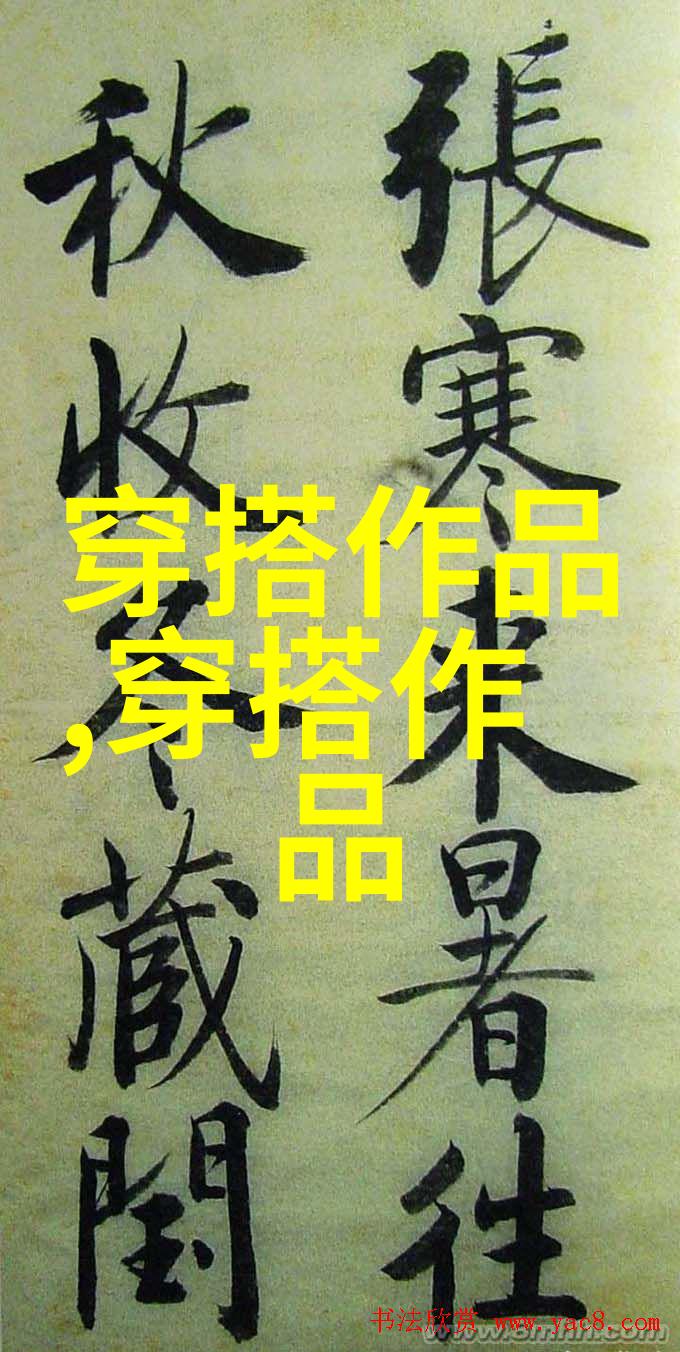 張寒来暑往
秋收冬蔵閏
穿搭作品
,穿搭作
品
书法欣赏 www.yac8.com